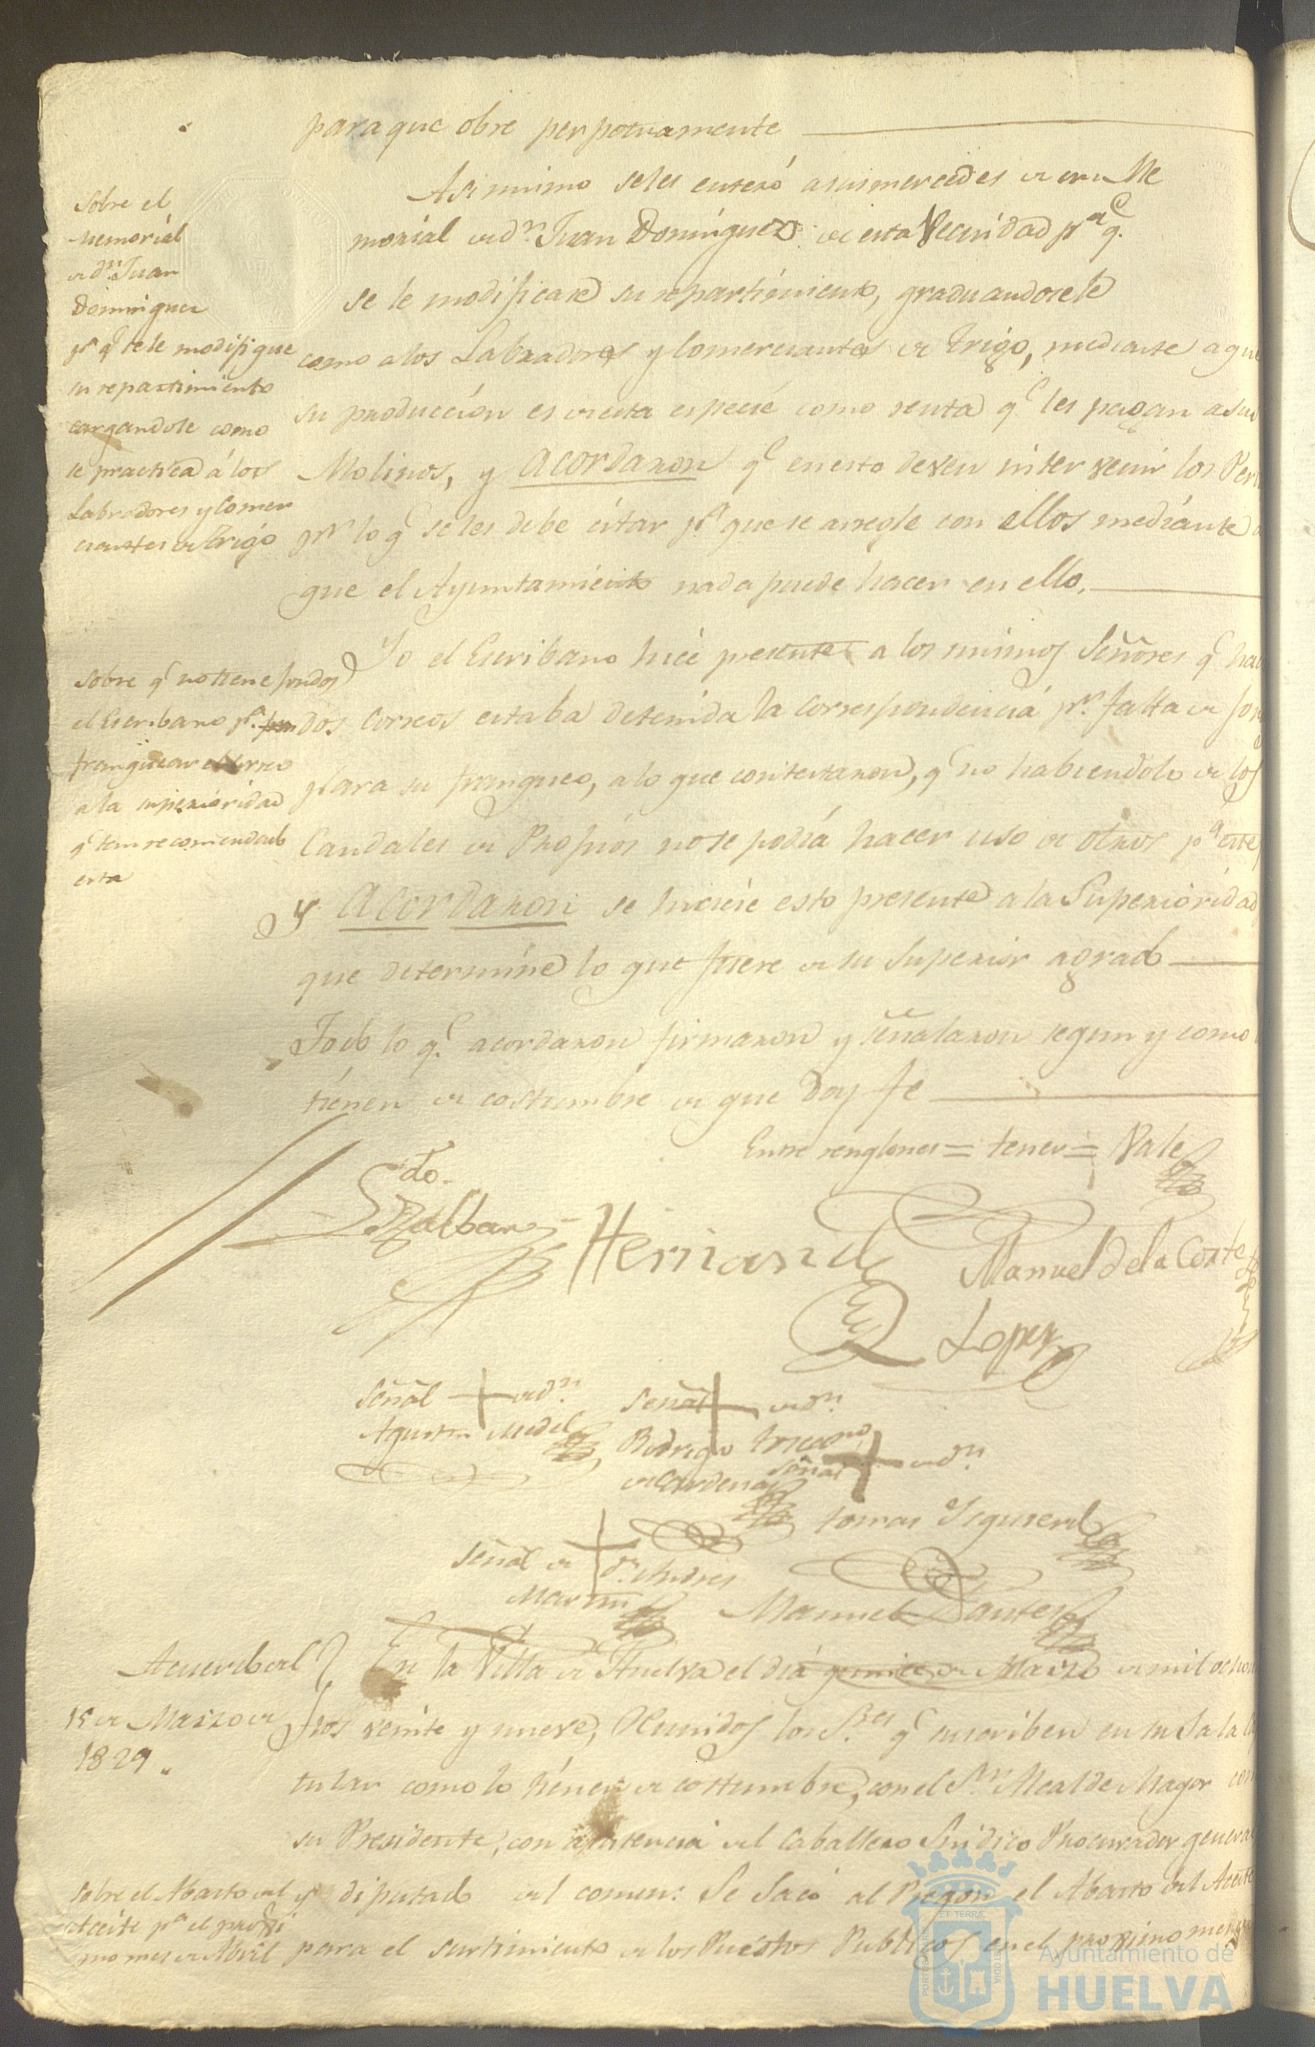 para que obre perpetuamente
Asimismo se les enteró a sus mercedes de un Me
morial de dn. Juan Dominguez de esta Vecindad pa. q.
se le modificase su repartimiento, graduandosele
como a los Labradores y Comerciantes de Trigo, mediante a que
su producción es de esta especie como renta q. les pagan a sus
Molinos, y Acordaron q. en esto deven intervenir los Peri
pr. lo q. se les debe citar pa. que se arregle con ellos mediante a
que el Ayuntamiento nada puede hacer en ello.
sobre el
Memorial
de dn. Juan
Dominguez
pr. q. se le modifique
su repartimiento
cargandole como
se practica á los
Labradores y Comer
ciantes de Trigo
Yo el Escribano hicé presente a los mismos Señores q. ha
dos Correos estaba detenida la correspondencia pr. falta de fon
para su franqueo, a lo que contestaron, q. no habiendolo de los
Caudales de Propios no se podia hacer uso de otros pa. este
y Acordaron se hiciese esto presente a la Superioridad
que determine lo que fuere de su superior agrado
sobre q. no tiene fondos
el Escribano pa.
franquear el Correo
a la superioridad
q. tiene recomendado
esta
Todo lo q. acordaron firmaron y señalaron segun y como
tienen de costumbre de que doy fe
Entre renglones = tener = Vale
Ldo.
Hernand
Manuel de la Corte
Lopez
Señal de dn.
Agustin Medel
Señal de dn.
Rodrigo
de Cardenas
Señal de dn.
tomas
Señal de
dn. Andres
Martin
Manuel
Acuerdo del
15 de Marzo de
1829.
En la Villa de Huelva el dia quince de Marzo de mil ochoc
tos veinte y nueve, Reunidos los Sres. q. suscriben en su Sala Ca
tular como lo tienen de costumbre, con el Sr. Alcalde Mayor com
su Presidente, con asistencia del Caballero Sindico Procurador general
y diputado del comun: Se Sacó al Pregon el Abasto del Aceite
para el surtimiento de los Puestos Publicos en el proximo mes
sobre el Abasto del
Aceite pa. el proxi
mo mes de Abril
Ayuntamiento de
HUELVA